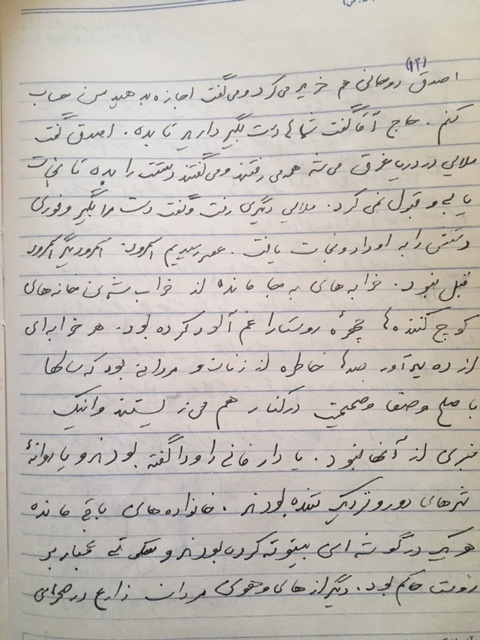 (۱۲)
اصدق روحانی هم خرید می‌کرد و می‌گفت اجازه بدهید من حساب
کنم. حاج آقا گفت شما دست بگیر دارید تا بده. اصدق گفت
ملایی در دریا غرق می‌شد همه می‌رفتند و می‌گفتند دستت را بده تا نجات
یابی و قبول نمی‌کرد. ملای دیگری رفت و گفت دست مرا بگیر و فوری
دستش را به او داد و نجات یافت. عصر رسیدیم امرود. امرود دیگر امرود
قبل نبود. خرابه‌های به جا مانده از خراب شدن خانه‌های
کوچ کننده‌ها چهرهٔ روستا را غم آلود کرده بود. هر خرابه‌ای
از ده یادآور صدها خاطره از زنان و مردانی بود که سالها
با صلح و صفا و صمیمیت در کنار هم می‌زیستند و اینک
خبری از آنها نبود. یا دار فانی را وداع گفته بودند و یا روانهٔ
شهرهای دور و نزدیک شده بودند. خانواده‌های باقی مانده
هر یک در گوشه‌ای بیتوته کرده بودند و سکوتی غمبار بر
روستا حاکم بود. دیگر از های و هوی مردان زارع در صحرای